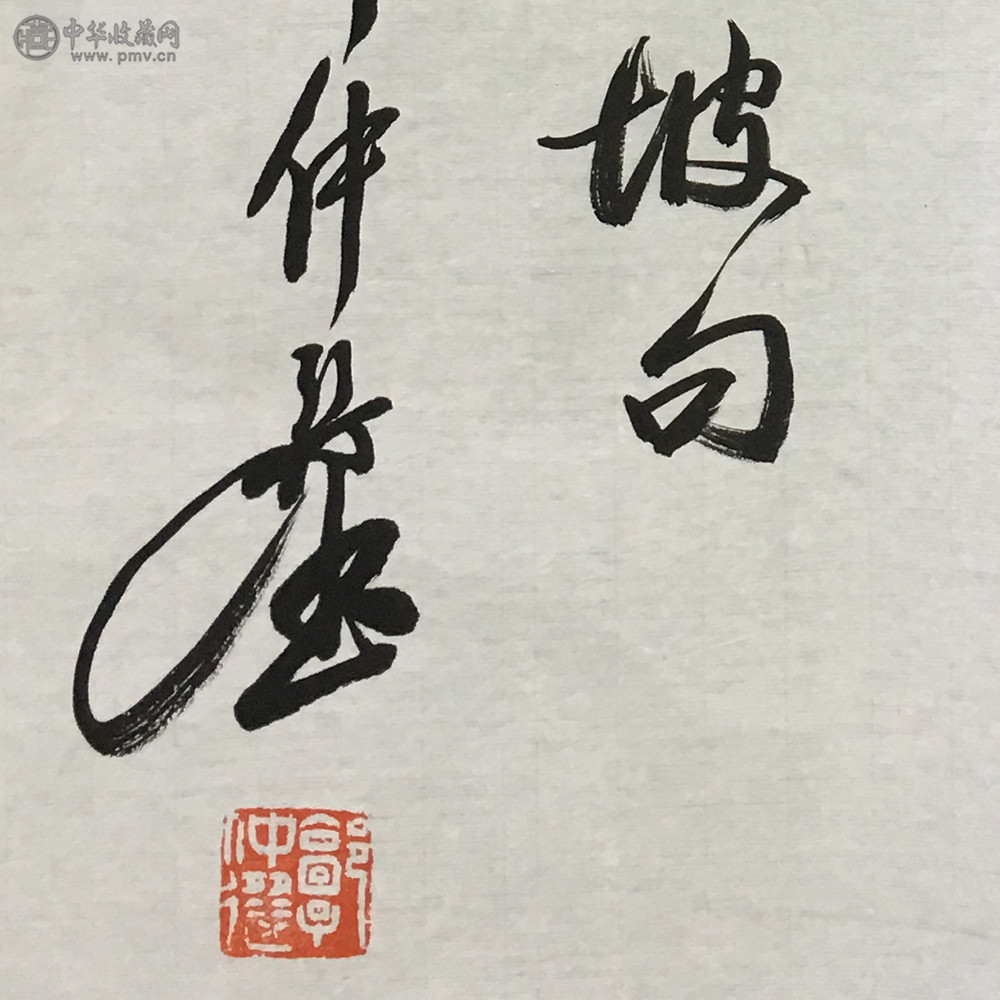 中华收藏网
www.pmv.cn
坡句
仲選
郭
仲選